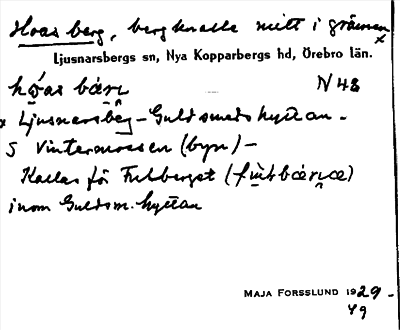 Hoas berg, bergknalle mitt i gränsen
Ljusnarsbergs sn, Nya Kopparbergs hd, Örebro län.
N 48
x Ljusnarsbeg - Guldsmedshyttan -
S Vintermossen (byn) -
Kallas för Finnberget
inom Guldsm.hyttan
MAJA FORSSLUND 1929-
49